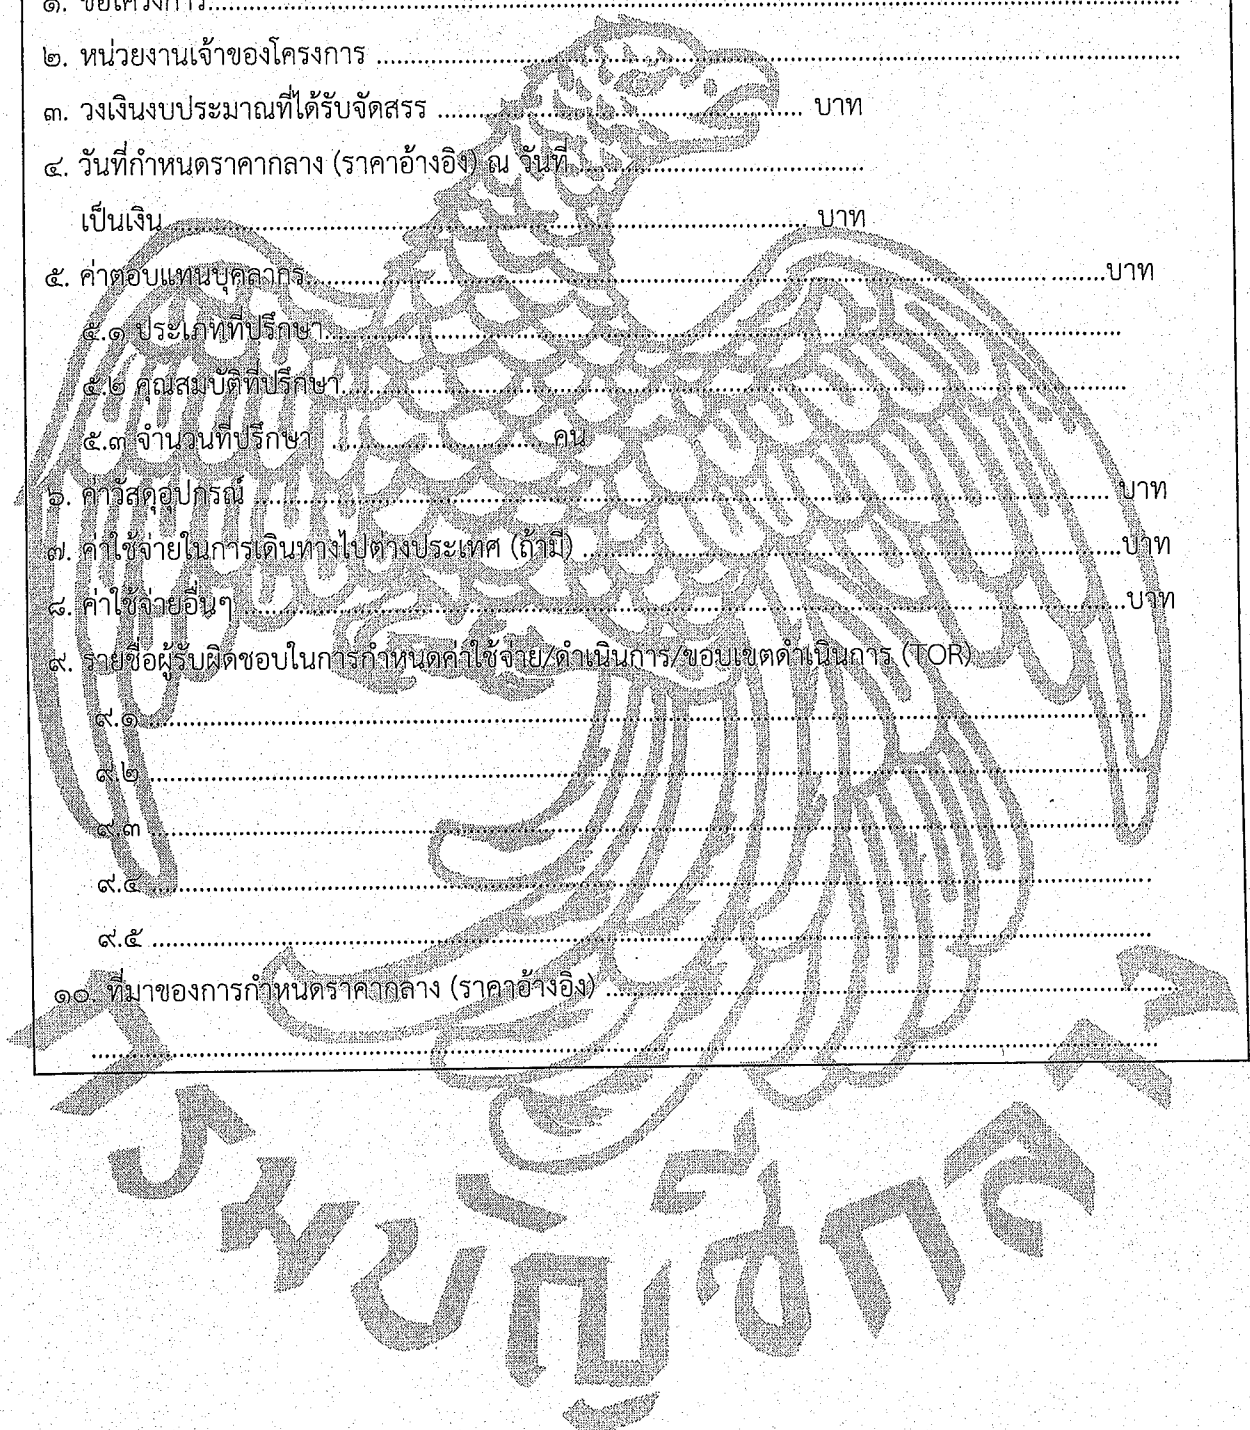 ๑. ชื่อโครงการ....................
๒. หน่วยงานเจ้าของโครงการ ....................
๓. วงเงินงบประมาณที่ได้รับจัดสรร .................... บาท
๔. วันที่กำหนดราคากลาง (ราคาอ้างอิง) ณ วันที่....................
เป็นเงิน.................... บาท
๕. ค่าตอบแทนบุคลากร....................บาท
๕.๑ ประเภทที่ปรึกษา....................
๕.๒ คุณสมบัติที่ปรึกษา....................
๕.๓ จำนวนที่ปรึกษา .................... คน
๖. ค่าวัสดุอุปกรณ์ .................... บาท
๗. ค่าใช้จ่ายในการเดินทางไปต่างประเทศ (ถ้ามี) ....................บาท
๘. ค่าใช้จ่ายอื่นๆ ....................บาท
๙. รายชื่อผู้รับผิดชอบในการกำหนดค่าใช้จ่าย/ดำเนินการ/ขอบเขตดำเนินการ (TOR)
๙.๑ ....................
๙.๒ ....................
๙.๓ ....................
๙.๔ ....................
๙.๕ ....................
๑๐. ที่มาของการกำหนดราคากลาง (ราคาอ้างอิง) ....................
....................
กรมบัญชีกลาง